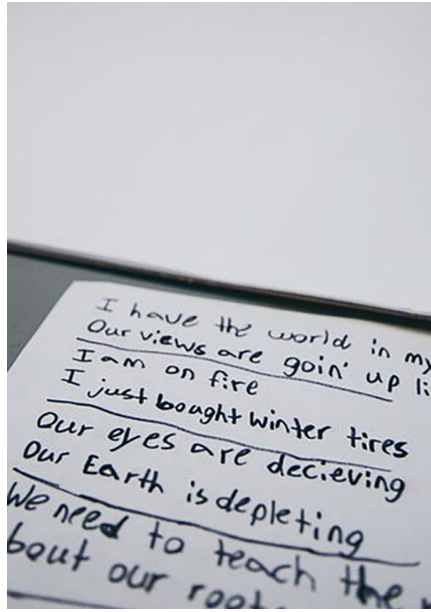 I have the world in my
Our views are goin' up
I am on fire
I just bought winter tires
Our eyes are decieving
Our Earth is depleting
We need to teach the
bout our